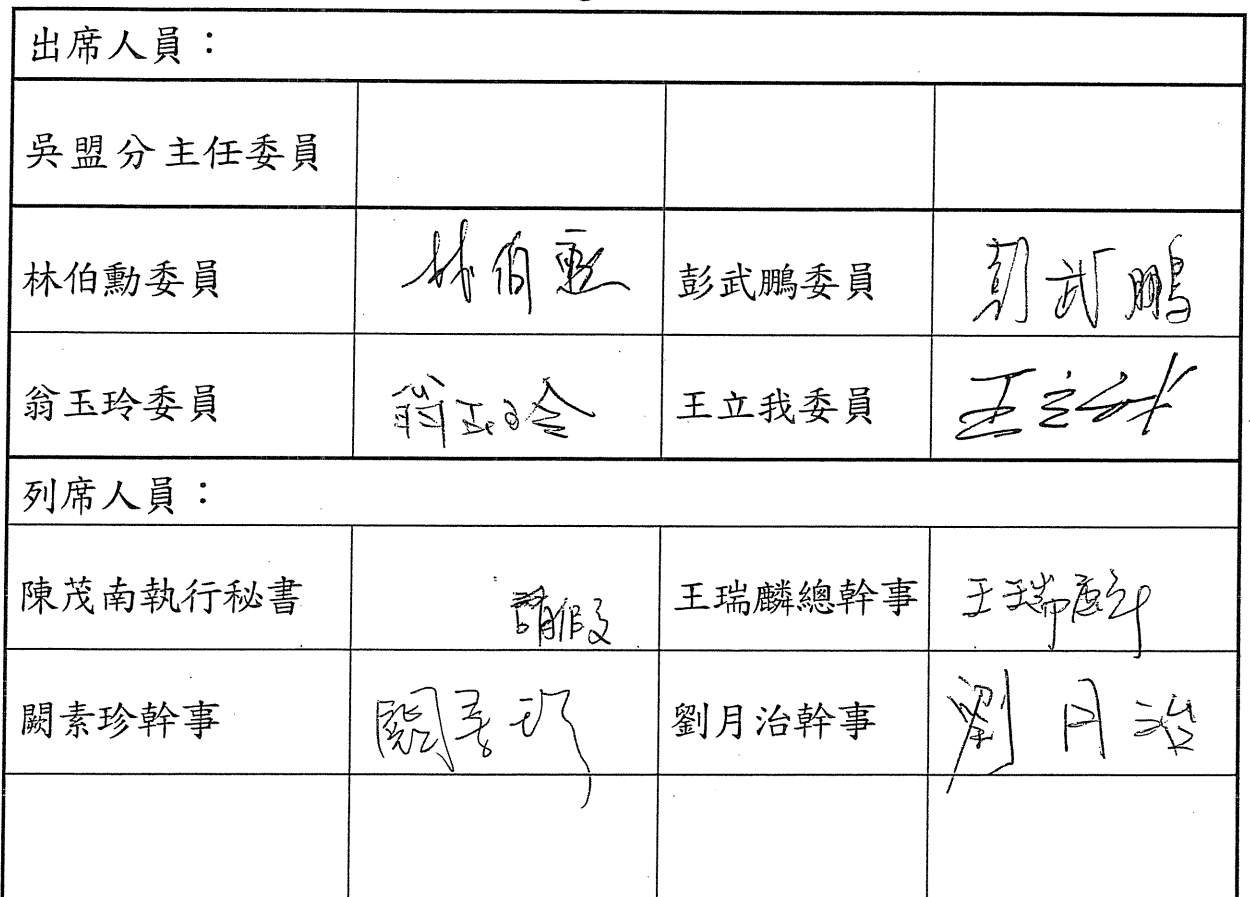 出席人員：
吳盟分主任委員
林伯勳委員 林伯勳 彭武鵬委員 彭武鵬
翁玉玲委員 翁玉玲 王立我委員 王立我
列席人員：
陳茂南執行秘書 請假 王瑞麟總幹事 王瑞麟
闕素珍幹事 闕素珍 劉月治幹事 劉月治